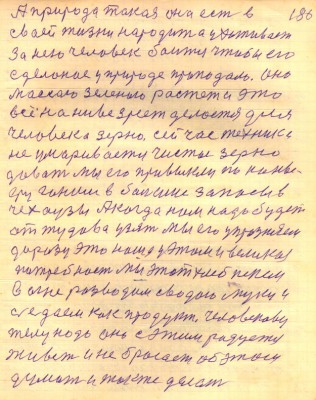 А природа такая она ест в 186
своей жизни народит а ухаживает
за нею человек боится чтобы его
сделоное у природе пропадало. Оно
массаю зеленаю растет и это
всё на ниве зреет делоется для
человека зерно, сейчас техника
не умаривается чистое зерно
довать мы его привыкли по конве-
еру гоним в большие запасы в
чехаузы А когда нам надо будет
оттудова узят мы его
дорогу это наша у этом и велика
потребност мы этот хлеб пекем
В огне розводим сводою муки и
следаем как продукт человекову
телу надо оно с этим радуется
живет и не бросает об этом
думат и тоже делат